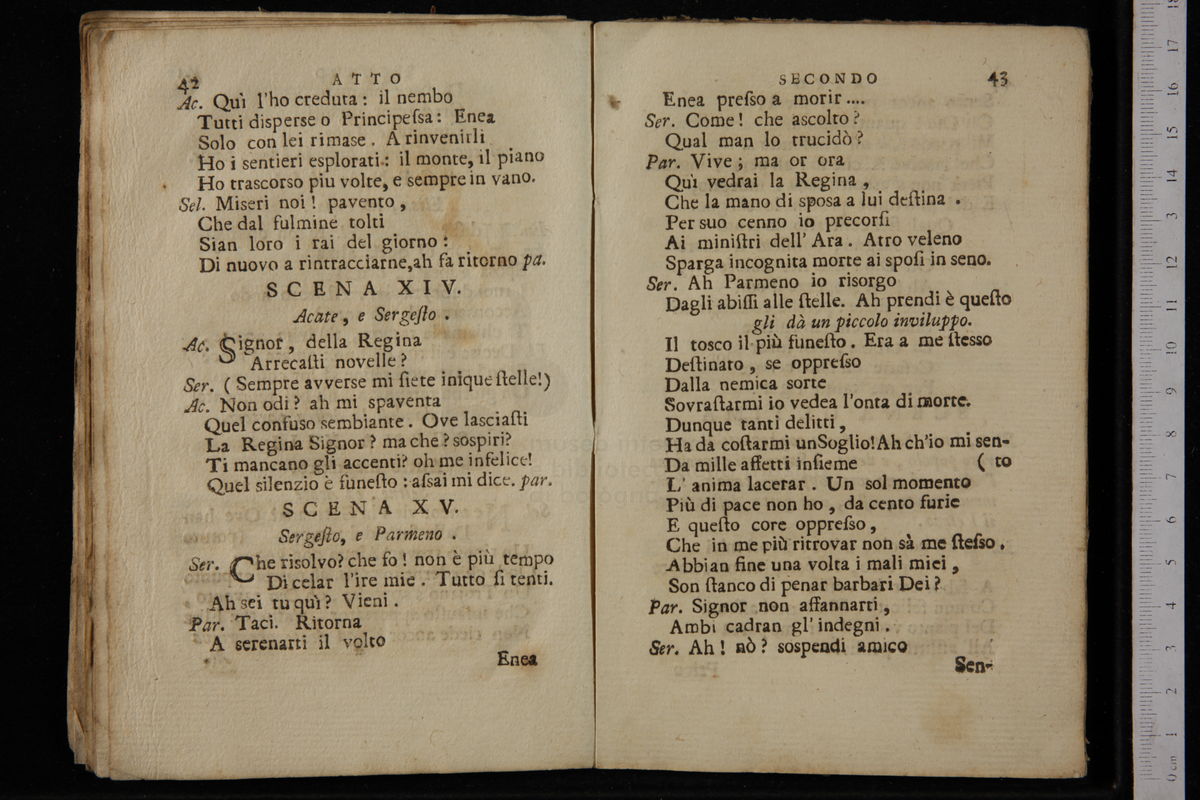 42 ATTO
Ac. Quì l'ho creduta: il nembo
Tutti disperse o Principeſsa: Enea
Solo con lei rimase. A rinvenirli
Ho i sentieri esplorati: il monte, il piano
Ho trascorso piu volte, e sempre in vano.
Sel. Miseri noi! pavento,
Che dal fulmine tolti
Sian loro i rai del giorno:
Di nuovo a rintracciarne,ah fa ritorno pa.
SCENA XIV.
Acate, e Sergeſto.
Ac. Signor, della Regina
Arrecaſti novelle?
Ser. (Sempre avverse mi ſiete inique ſtelle!)
Ac. Non odi? ah mi spaventa
Quel confuso sembiante. Ove lasciaſti
La Regina Signor? ma che? sospiri?
Ti mancano gli accenti? oh me infelice!
Quel silenzio è funeſto: aſsai mi dice. par.
SCENA XV.
Sergeſto, e Parmeno.
Ser. Che risolvo? che fo! non è più tempo
Di celar l'ire mie. Tutto ſi tenti.
Ah sei tu quì? Vieni.
Par. Taci. Ritorna
A serenarti il volto
Enea
SECONDO 43
Enea preſso a morir....
Ser. Come! che ascolto?
Qual man lo trucidò?
Par. Vive; ma or ora
Quì vedrai la Regina,
Che la mano di sposa a lui deſtina.
Per suo cenno io precorſi
Ai miniſtri dell' Ara. Atro veleno
Sparga incognita morte ai spoſi in seno.
Ser. Ah Parmeno io risorgo
Dagli abiſſi alle ſtelle. Ah prendi è queſto
gli dà un piccolo inviluppo.
Il tosco il più funeſto. Era a me ſtesso
Deſtinato, se oppreſso
Dalla nemica sorte
Sovraſtarmi io vedea l'onta di morte.
Dunque tanti delitti,
Ha da coſtarmi unSoglio!Ah ch'io mi sen-
Da mille affetti inſieme (to
L' anima lacerar. Un sol momento
Più di pace non ho, da cento furie
E queſto core oppreſso,
Che in me più ritrovar non sà me ſteſso.
Abbian fine una volta i mali miei,
Son ſtanco di penar barbari Dei?
Par. Signor non affannarti,
Ambi cadran gl' indegni.
Ser. Ah! nò? sospendi amico
Sen-